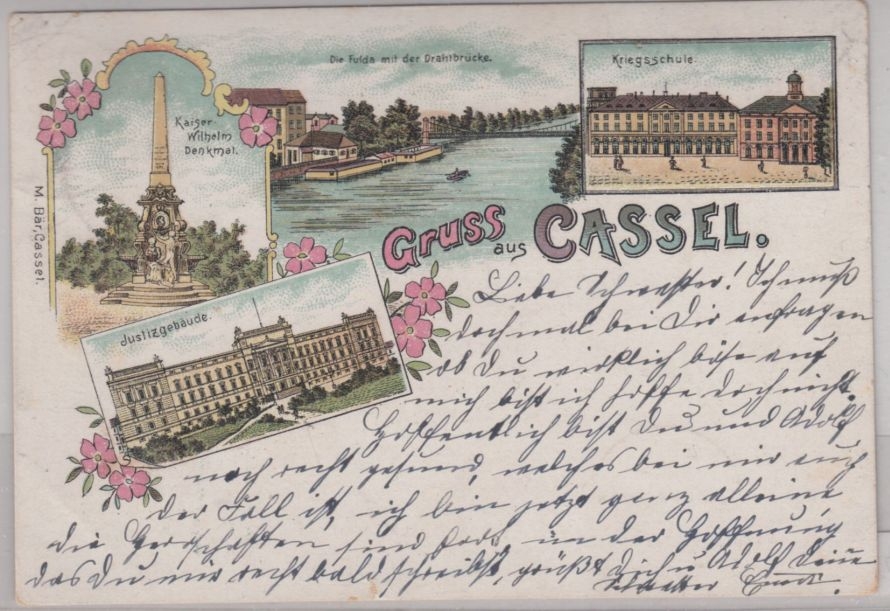 Die Fulda mit der Drahtbrücke.
Kriegsschule.
Kaiser-
Wilhelm
Denkmal.
M. Bär, Cassel.
Gruss aus CASSEL.
Justizgebäude.
Liebe Schwester! Ich muß
doch mal bei Dir anfragen
ob Du wirklich böse auf
mich bist ich hoffe doch nicht.
Hoffentlich bist Du und Adolf
noch recht gesund, welches bei mir auch
der Fall ist, ich bin jetzt ganz alleine
die Herrschaften sind fort, in der Hoffnung
das Du mir recht bald schreibst, grüßt Dich u Adolf Deine
Schwester